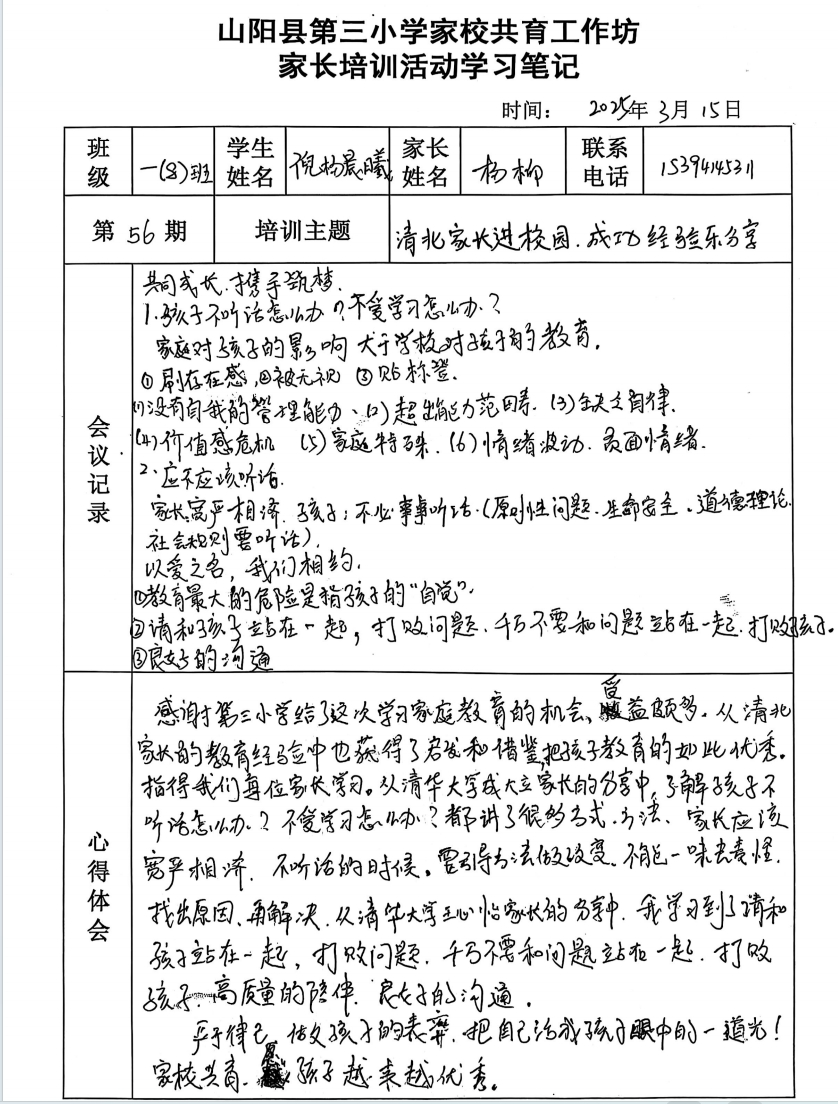 山阳县第三小学家校共育工作坊
家长培训活动学习笔记
时间： 2025年 3月 15日
班级 一(8)班 学生姓名 倪杨晨曦 家长姓名 杨柳 联系电话 15394145311
第 56 期 培训主题 清北家长进校园.成功经验乐分享
会议记录
共同成长.携手筑梦.
1.孩子不听话怎么办？不爱学习怎么办？
家庭对孩子的影响大于学校对孩子的教育。
①刷存在感,②被无视 ③贴标签.
(1)没有自我的管理能力、(2)超出能力范畴. (3)缺乏自律.
(4)价值感危机 (5)家庭特殊. (6)情绪波动.负面情绪.
2.应不应该听话.
家长:宽严相济. 孩子:不必事事听话.(原则性问题.生命安全.道德理论.
社会规则要听话).
以爱之名,我们相约.
①教育最大的危险是指孩子的"自觉".
②请和孩子站在一起,打败问题.千万不要和问题站在一起.打败孩子.
③良好的沟通
心得体会
感谢第三小学给了这次学习家庭教育的机会,受益颇多.从清北
家长的教育经验中也获得了启发和借鉴,把孩子教育的如此优秀。
指得我们每位家长学习。从清华大学成大立家长的分享中,了解孩子不
听话怎么办？不爱学习怎么办？都讲了很多方式.方法. 家长应该
宽严相济. 不听话的时候。要引导方法做改变.不能一味去责怪.
找出原因.再解决.从清华大学王心怡家长的分享中.我学习到了请和
孩子站在一起,打败问题.千万不要和问题站在一起.打败
孩子.高质量的陪伴.良好的沟通.
严于律己.做父孩子的表率.把自己活成孩子眼中的一道光!
家校共育. 愿孩子越来越优秀。